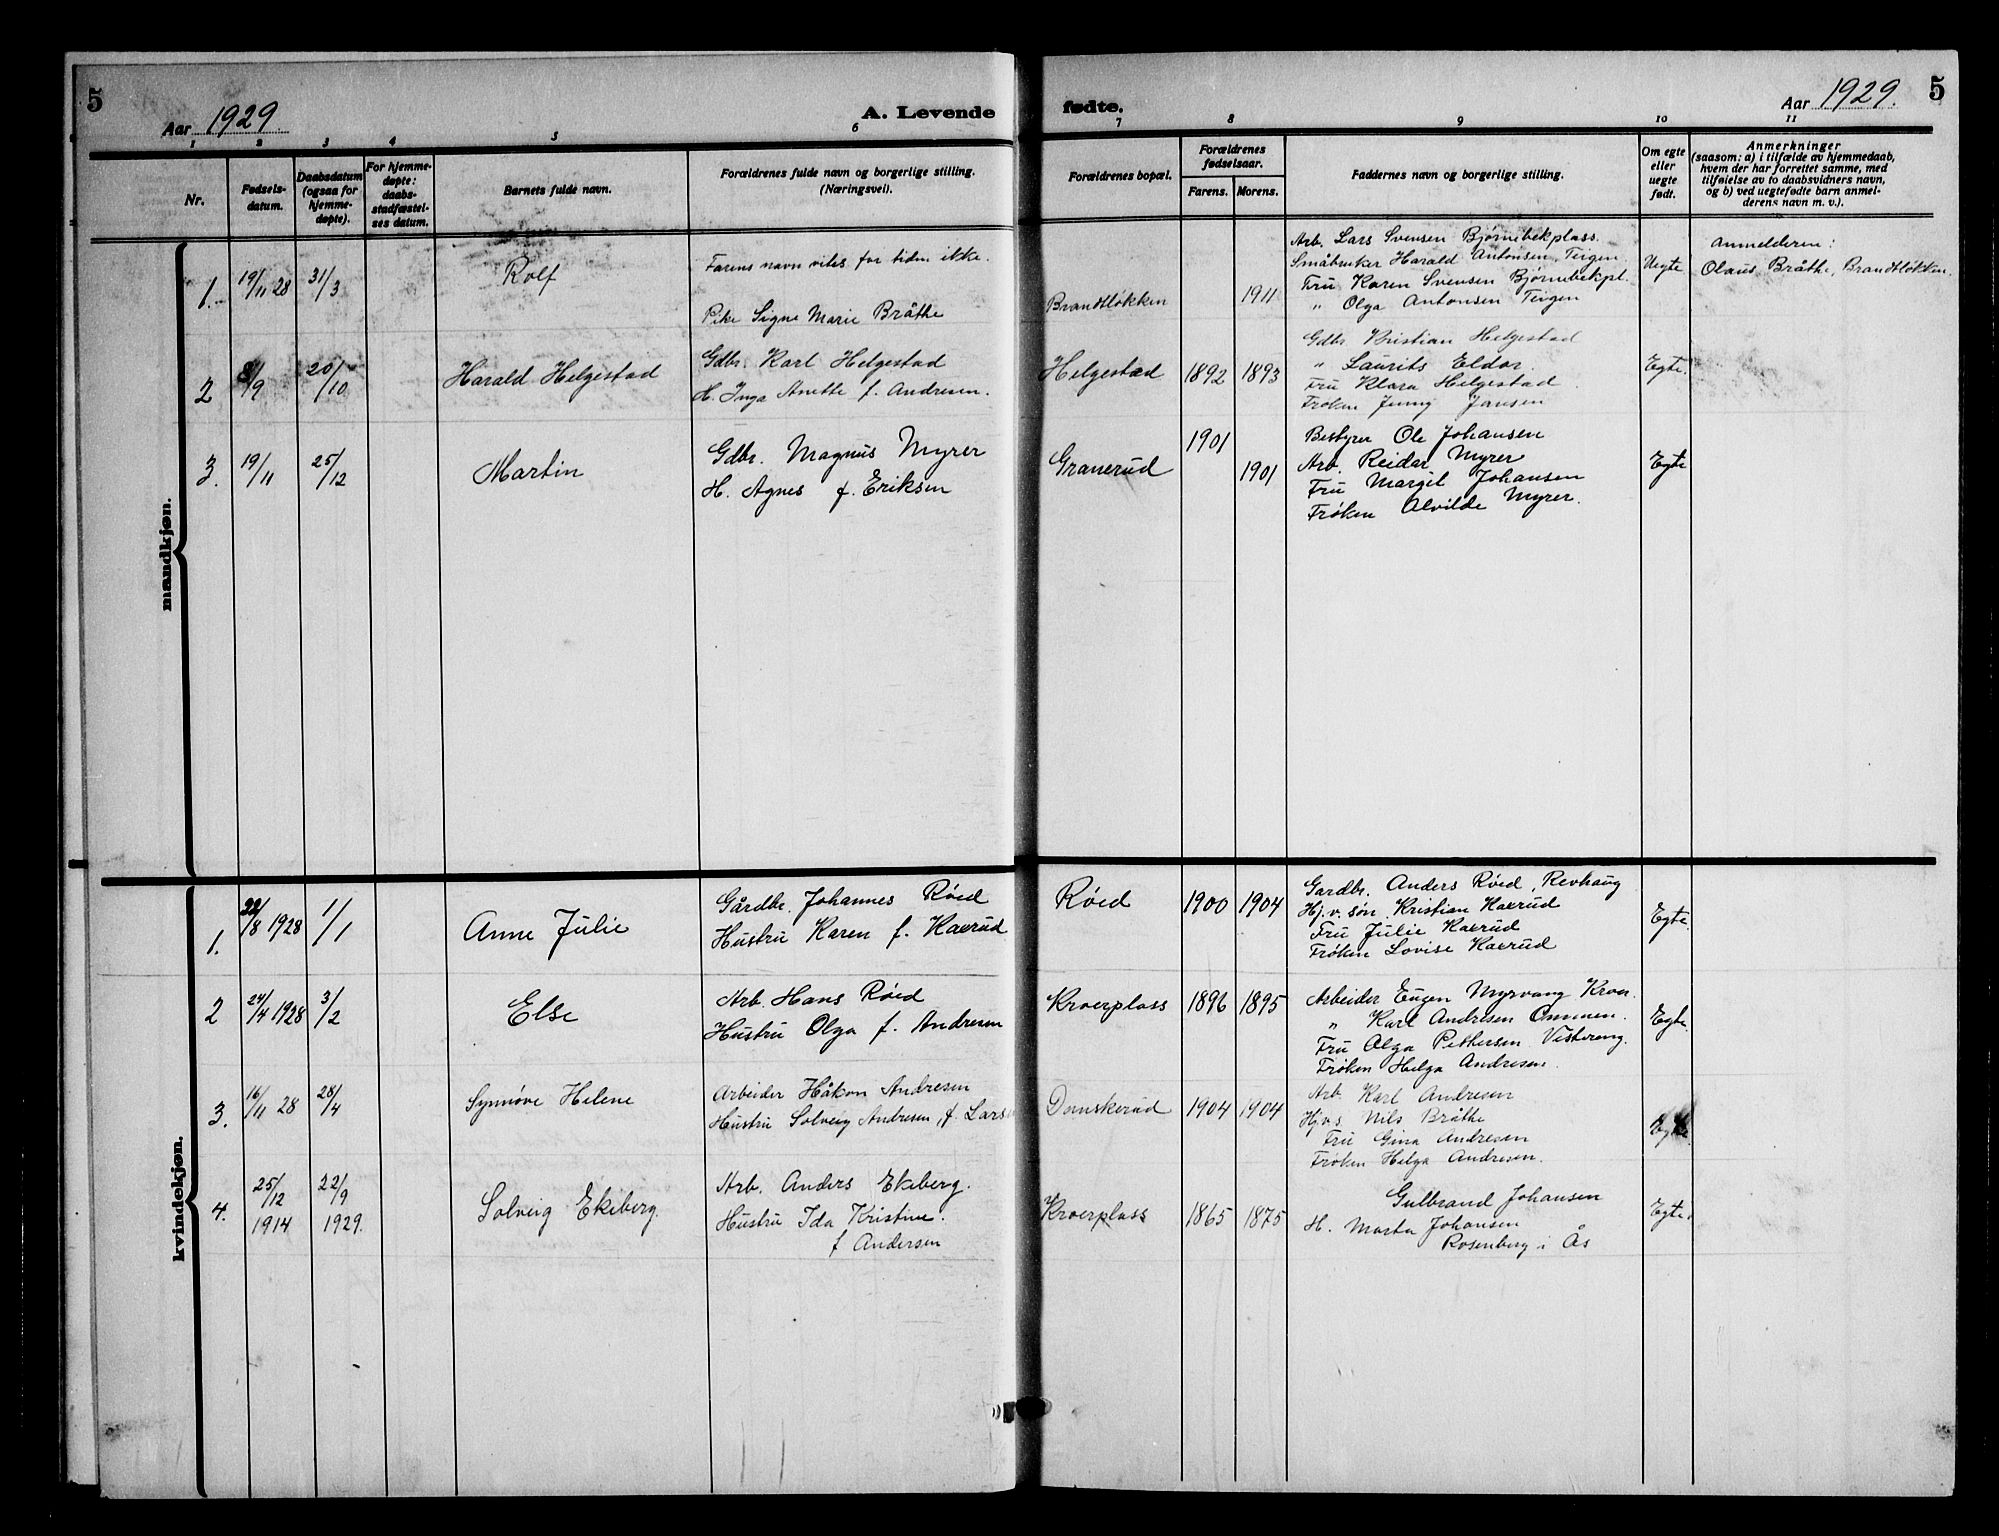 5
Aar 1929
A. Levende
fødte.
Aar 1929.
5
1 2 3 4 5 6 7 8 9 10 11
Nr.
Fødsels-
datum.
Daabsdatum
(ogsaa for
hjemme-
døpte).
For hjemme-
døpte:
daabs-
stadfæstel-
ses datum.
Barnets fulde navn.
Forældrenes fulde navn og borgerlige stilling.
(Næringsvei).
Forældrenes bopæl.
Forældrenes
fødselsaar.
Farens. Morens.
Faddernes navn og borgerlige stilling.
Om egte
eller
uegte
født.
Anmerkninger
(saasom: a) i tilfælde av hjemmedaab,
hvem der har forrettet samme, med
tilføielse av to daabsvidners navn,
og b) ved uegtefødte barn anmel-
derens navn m. v.).
mandkjøn.
1. 19/11 28 31/3 Rolf
Farens navn vites for tiden ikke.
Pike Signe Marie Bråthe
Brandtløkken 1911
Arb. Lars Svensen Bjørnebekplass.
Småbruker Harald Antonsen, Teigen
Fru Karen Svensen Bjørnebekpl.
" Olga Antonsen Teigen
Uegte
Anmelderen:
Olaus Bråthe, Brandtløkken.
2 8/9 20/10 Harald Helgestad
Gdbr. Karl Helgestad
H. Inga Anette f. Andresen.
Helgestad 1892 1893
Gdbr. Kristian Helgestad
" Laurits Eldor.
Fru Klara Helgestad
Frøken Jenny Jansen
Egte.
3. 19/11 25/12 Martin
Gdbr. Magnus Myrer
H. Agnes f. Eriksen
Granerud 1901 1901
Bestyrer Ole Johansen
Arb. Reidar Myrer
Fru Margit Johansen
Frøken Alvilde Myrer.
Egte
kvindekjøn.
1. 22/8 1928 1/1 Anne Julie
Gårdbr. Johannes Røed
Hustru Karen f. Haxrud
Røed 1900 1904
Gardbr. Anders Røed, Revhaug
Hj.v. søn. Kristian Haxrud
Fru Julie Haxrud
Frøken Lovise Haxrud
Egte.
2 24/4 1928 3/2 Else
Arb. Hans Røed
Hustru Olga f. Andresen
Kroerplass 1896 1895
Arbeider Eugen Myrvang Kroer.
" Karl Andresen
Fru Olga Pettersen Vistereng.
Frøken Helga Andresen.
Egte.
3. 16/11 28 28/4 Synnøve Helene
Arbeider Håkon Andresen
Hustru Solveig Andresen, f. Larsen
Danskerud 1904 1904
Arb. Karl Andresen
Hj.v.s. Nils Bråthe
Fru Gina Andresen
Frøken Helga Andresen.
Egte
4. 25/12 1914 22/9 1929. Solveig Ekeberg.
Arb. Anders Ekeberg.
Hustru Ida Kristine.
f Andersen
Kroerplass 1865 1875
Gulbrand Johansen
H. Marta Johansen
Rosenberg i Ås
Egte.